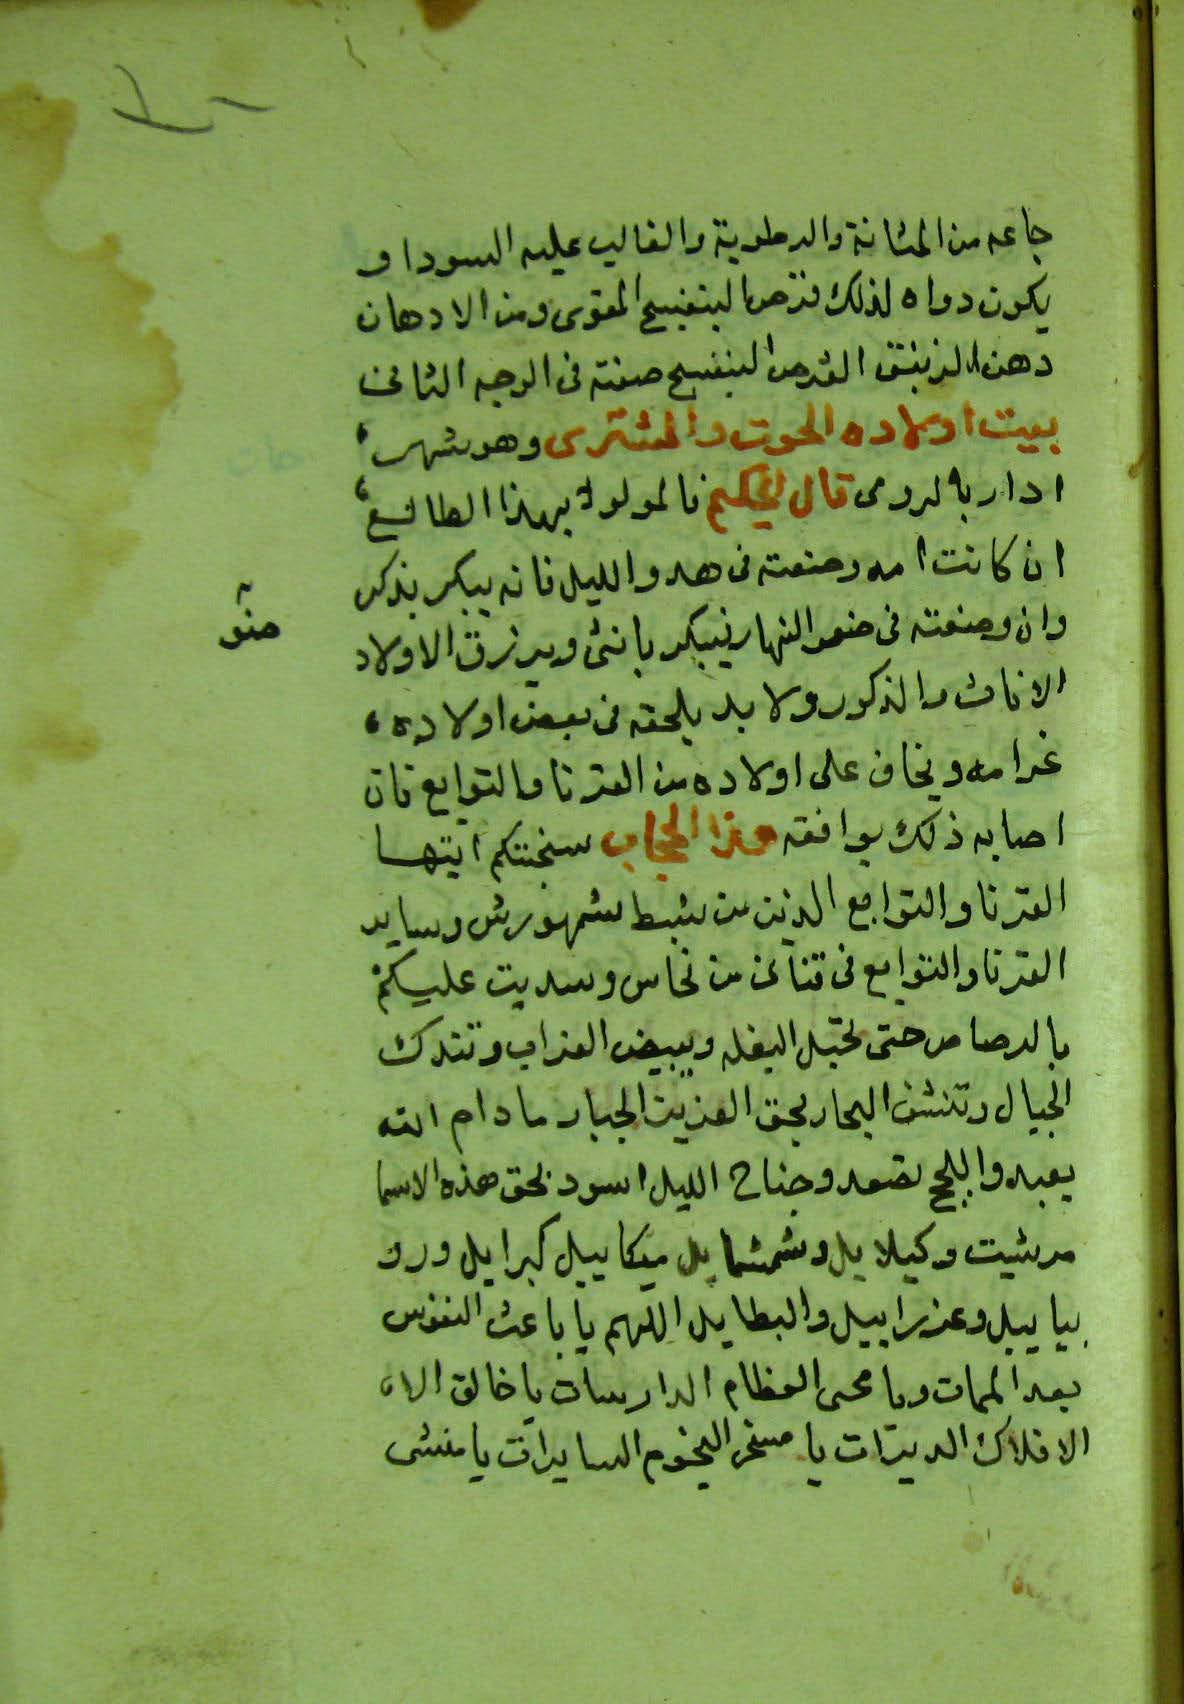 جاعه من المثانة والرطوبة والغالب عليه السودا و
يكون دواه لذلك قرص البنفسج المقوى ومن الادهان
دهن الزنبق القرص البنفسج صفته فى الوجه الثانى
بيت اولاده الحوت والمشترى وهو شهر
ادار بالرومى قال الحكيم فالمولود بهذا الطالع
ان كانت امه وضعته فى هدو الليل فانه يبكر بذكر
وان وضعته فى ضو النهار فيبكر بانثى ويرزق الاولاد
الاناث والذكور ولا بد يلحقه فى بعض اولاده
غرامه ويخاف على اولاده من القرنا والتوابع فان
اصابه ذلك يوافقه هذا الحجاب سجنتكم ايتها
القرنا والتوابع الذين من سبط شمهورش وساير
القرنا والتوابع فى قنانى من نحاس وسديت عليكم
بالرصاص حتى تحبل البغله ويبيض الغراب وتندك
الجبال وتنشف البحار بحق العزيز الجبار ما دام الله
يعبد واللج تصعد وجناح الليل اسود بحق هذه الاسما
مرشيت وكيلايل وشمشايل ميكاييل كبرايل ورو
بياييل وعزراييل والبطايل اللهم يا باعث النفوس
بعد الممات ويا محى العظام الدارسات يا خالق الا
الافلاك الديرات يا مسخر النجوم السايرات يا منشى
ضو